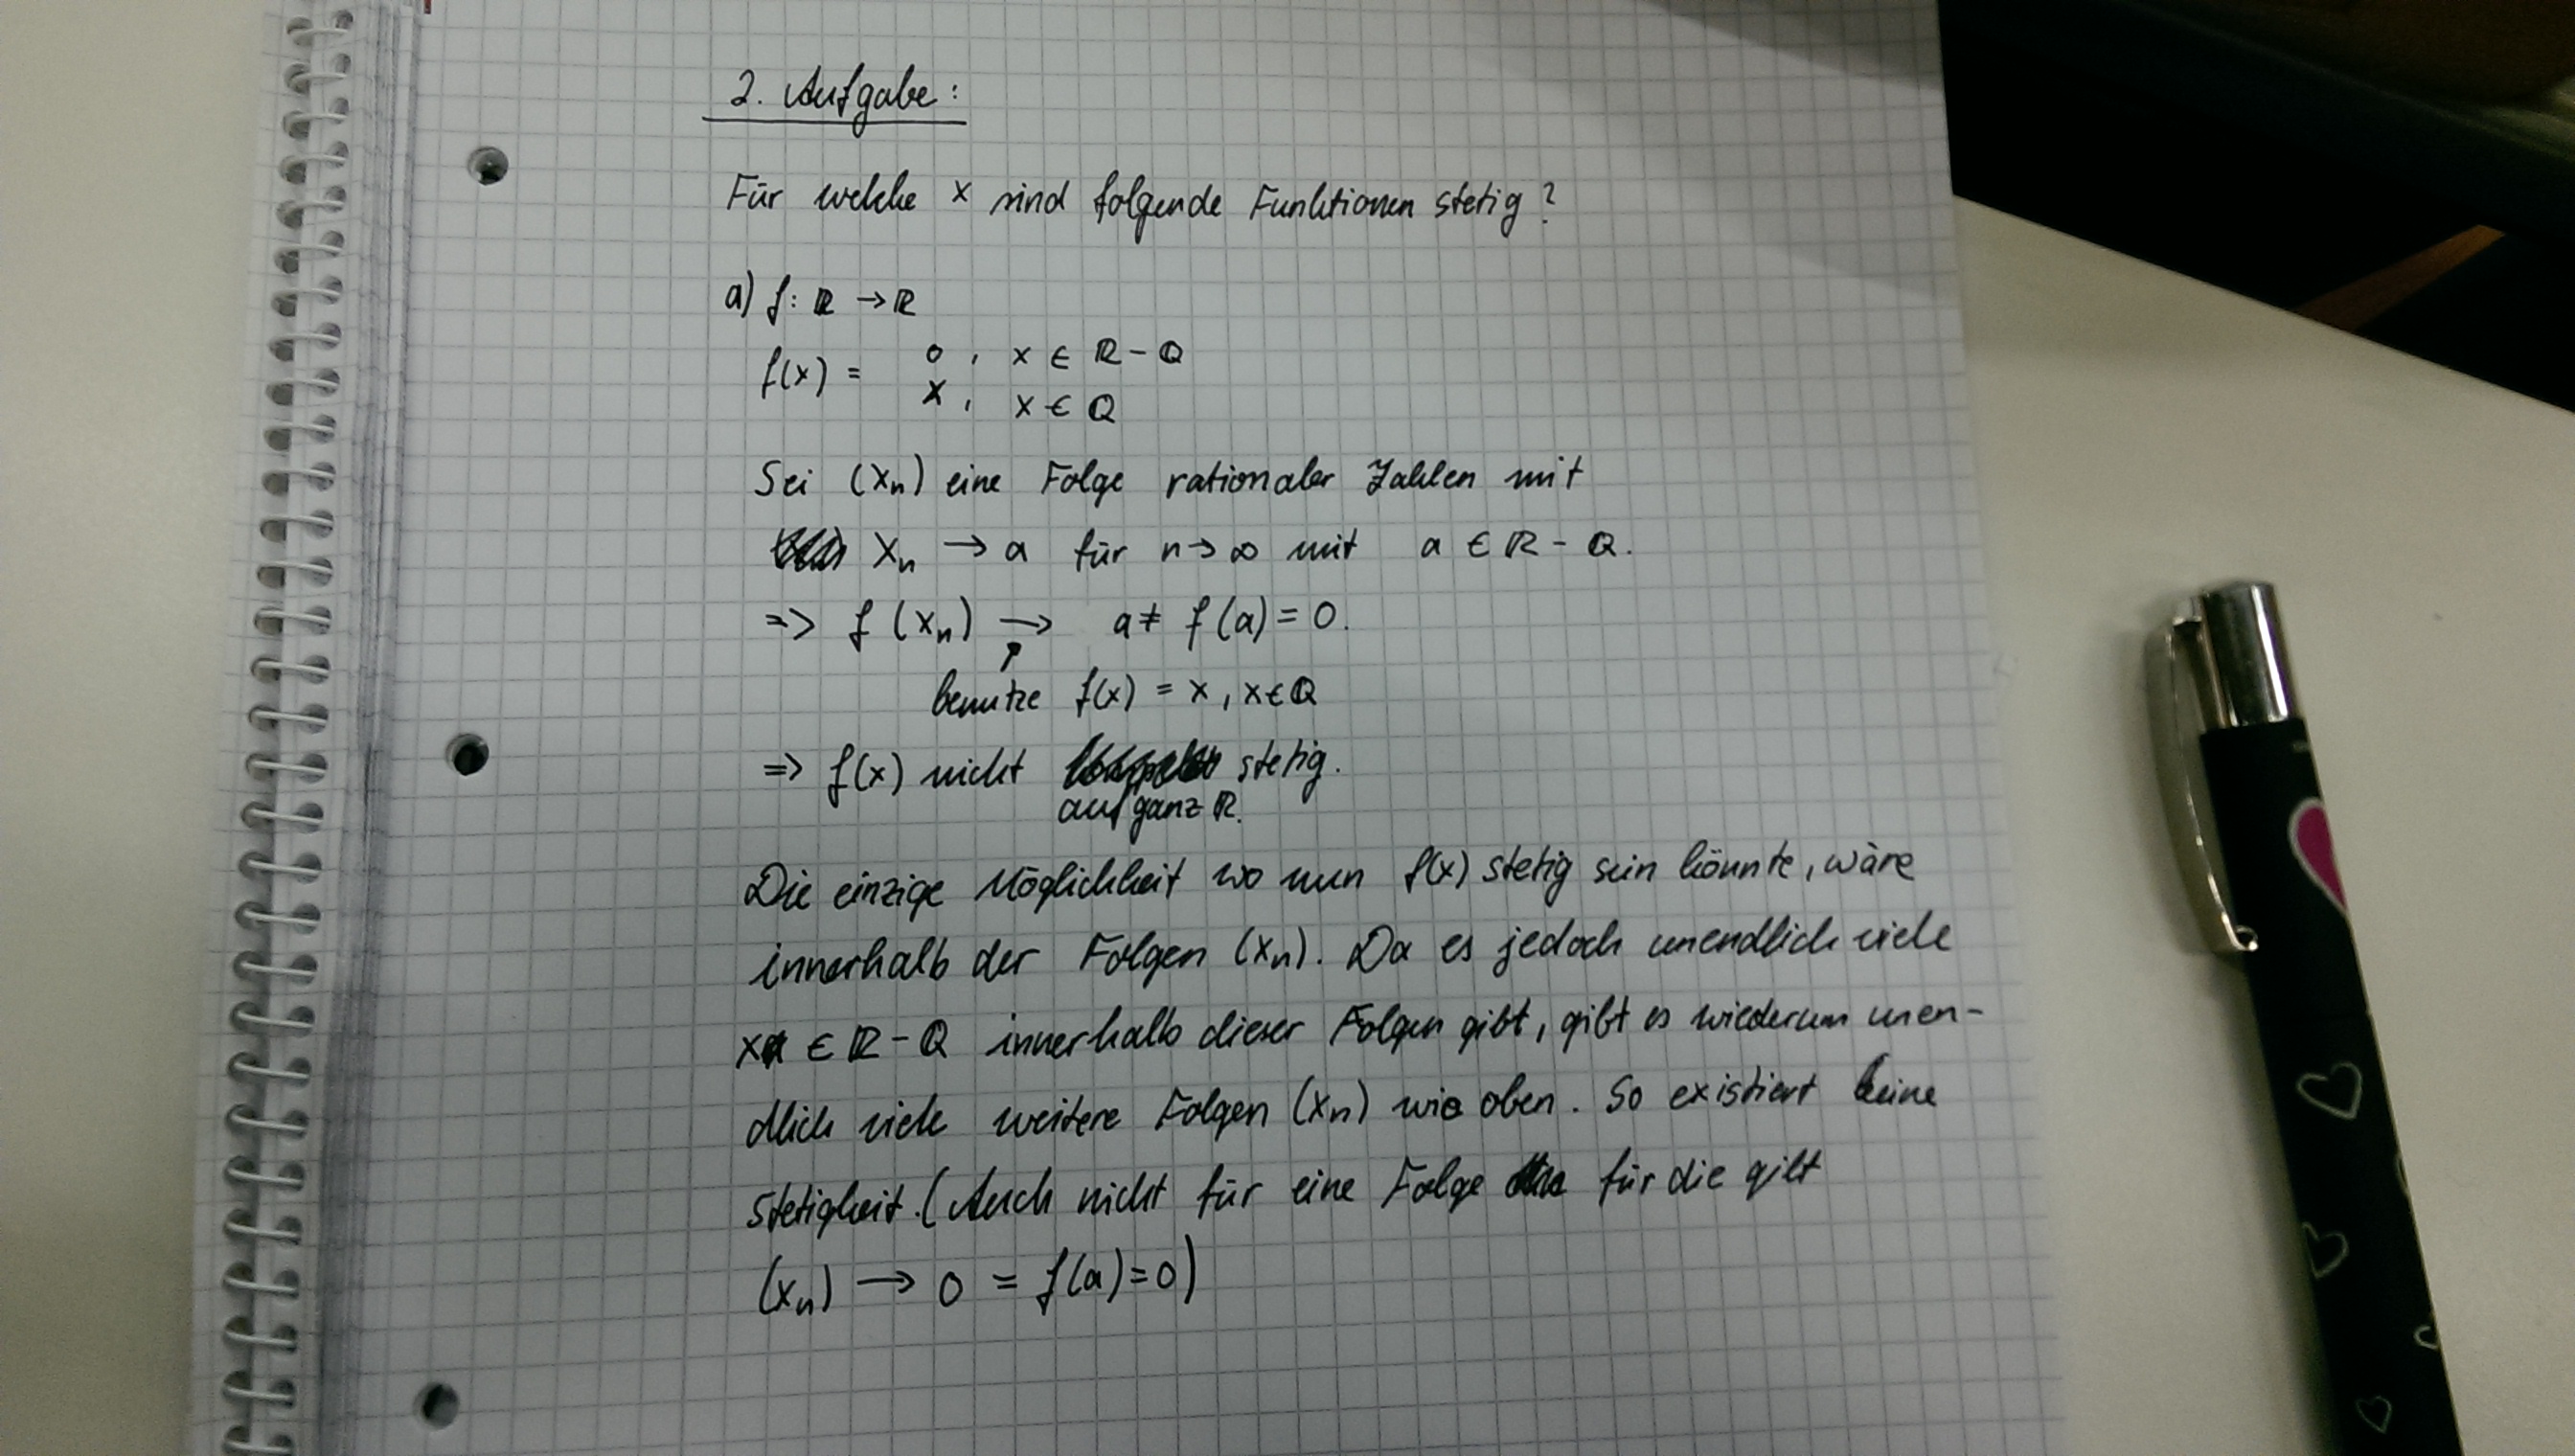 2. Aufgabe:
Für welche x sind folgende Funktionen stetig?
a) f: ℝ → ℝ
f(x) = 0, x ∈ ℝ - ℚ
x, x ∈ ℚ
Sei (xₙ) eine Folge rationaler Zahlen mit
xₙ → a für n → ∞ mit a ∈ ℝ - ℚ.
=> f(xₙ) → a ≠ f(a) = 0.
benutze f(x) = x, x ∈ ℚ
=> f(x) nicht stetig.
auf ganz ℝ.
Die einzige Möglichkeit wo nun f(x) stetig sein könnte, wäre
innerhalb der Folgen (xₙ). Da es jedoch unendlich viele
x ∈ ℝ - ℚ innerhalb dieser Folgen gibt, gibt es wiederum unen-
dlich viele weitere Folgen (xₙ) wie oben. So existiert keine
Stetigkeit. (Auch nicht für eine Folge für die gilt
(xₙ) → 0 = f(a) = 0)